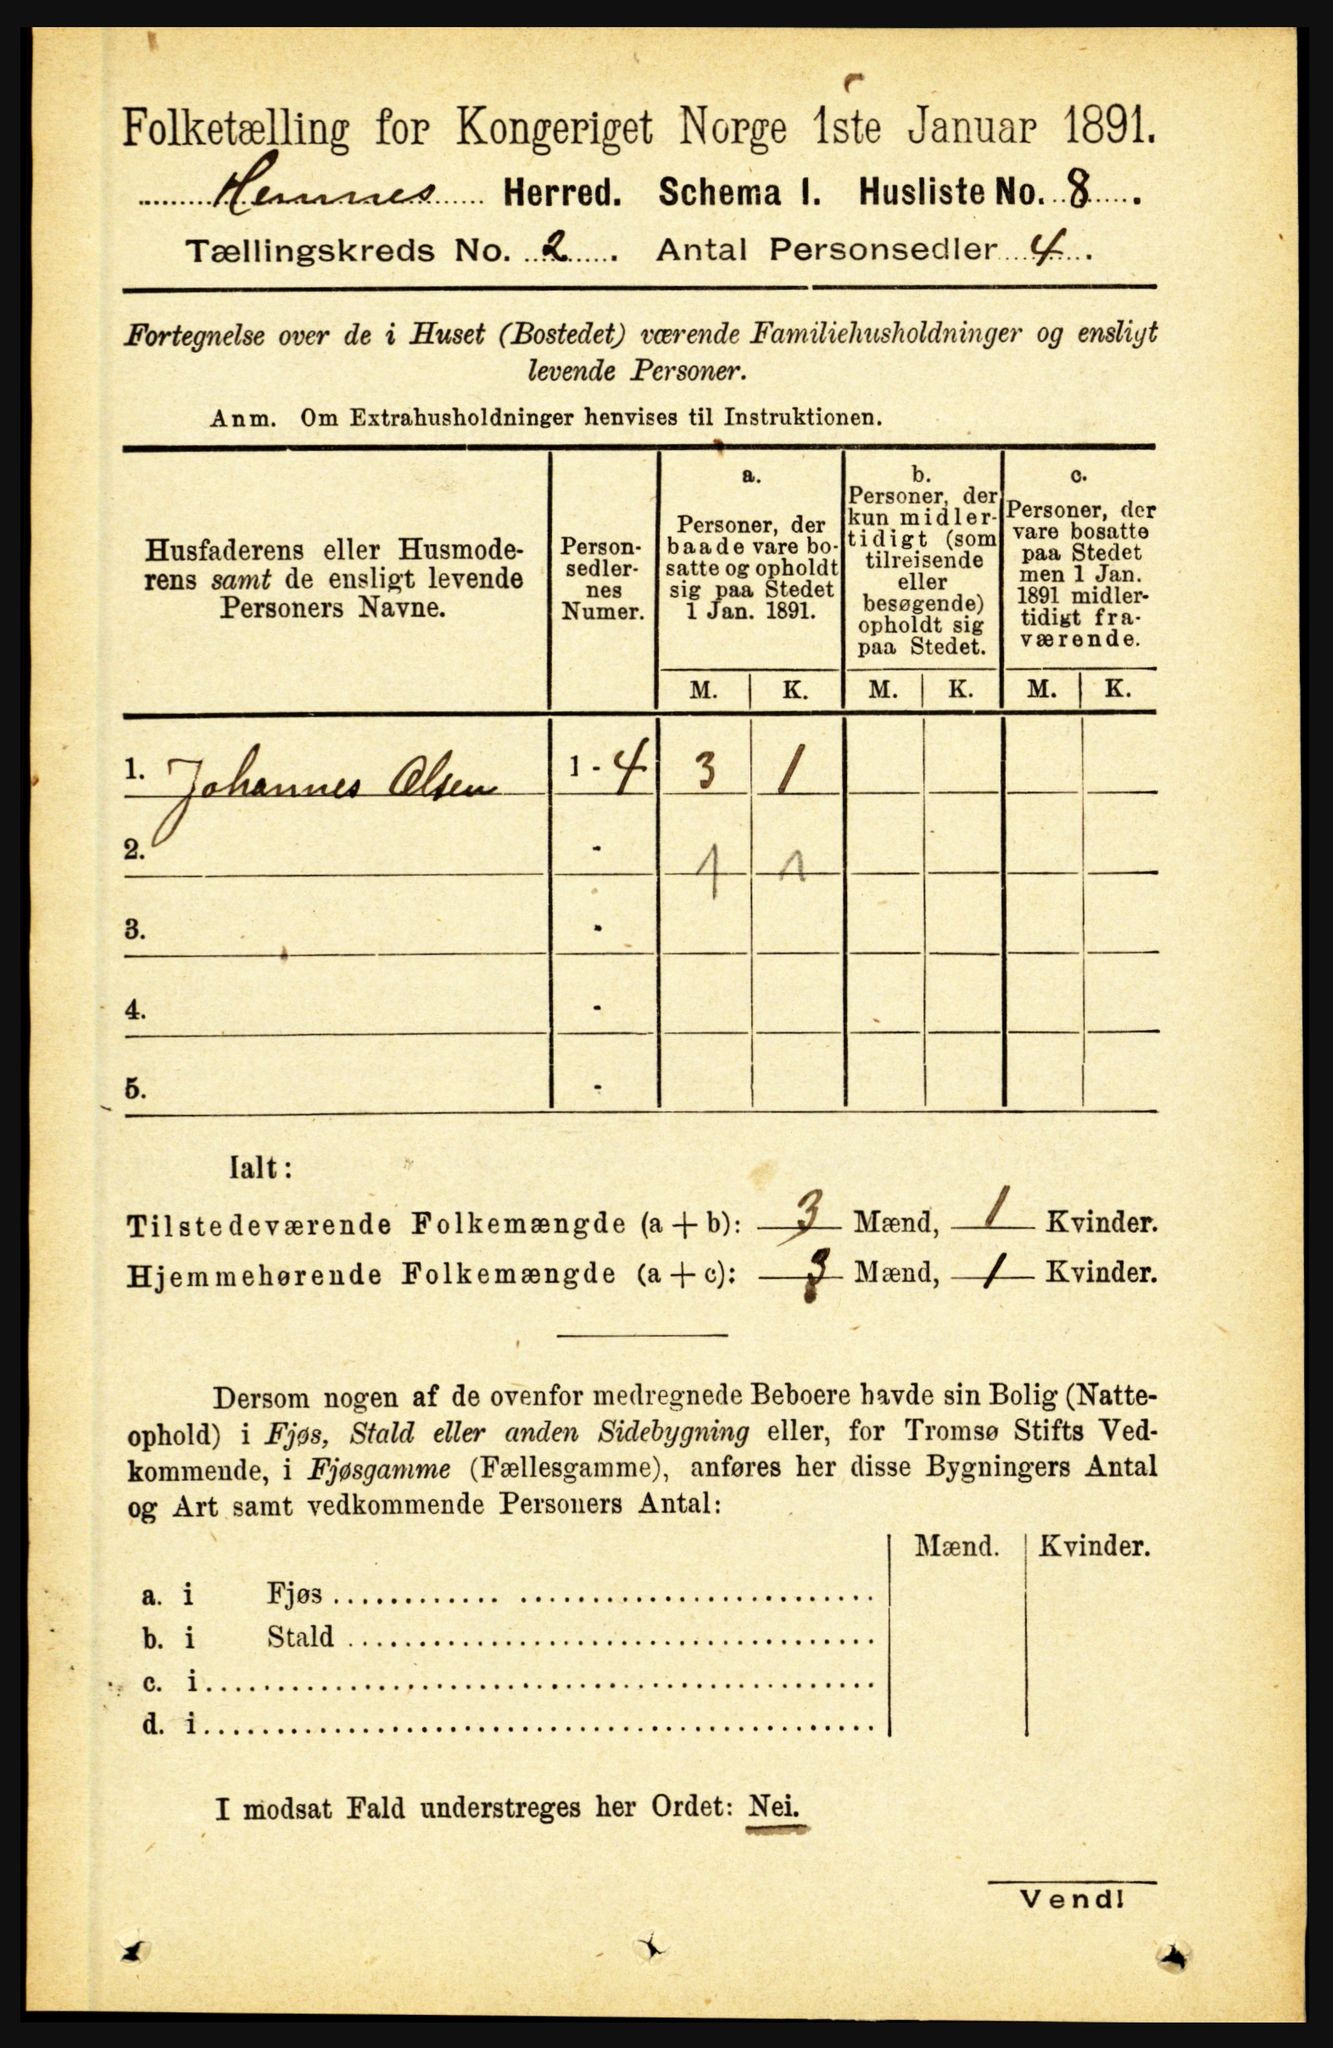 Folketælling for Kongeriget Norge 1ste Januar 1891.
Hemnes Herred. Schema I. Husliste No. 8.
Tællingskreds No. 2. Antal Personsedler 4.
Fortegnelse over de i Huset (Bostedet) værende Familiehusholdninger og ensligt
levende Personer.
Anm. Om Extrahusholdninger henvises til Instruktionen.
Husfaderens eller Husmode-
rens samt de ensligt levende
Personers Navne.
Person-
sedler-
nes
Numer.
a.
Personer, der
baade vare bo-
satte og opholdt
sig paa Stedet
1 Jan. 1891.
b.
Personer, der
kun midler-
tidigt (som
tilreisende
eller
besøgende)
opholdt sig
paa Stedet.
c.
Personer, der
vare bosatte
paa Stedet
men 1 Jan.
1891 midler-
tidigt fra-
værende.
M. K. M. K. M. K.
1. Johannes Olsen 1 - 4 3 1
2. - 1 1
3. -
4. -
5. -
Ialt:
Tilstedeværende Folkemængde (a + b): 3 Mænd, 1 Kvinder.
Hjemmehørende Folkemængde (a + c): 3 Mænd, 1 Kvinder.
Dersom nogen af de ovenfor medregnede Beboere havde sin Bolig (Natte-
ophold) i Fjøs, Stald eller anden Sidebygning eller, for Tromsø Stifts Ved-
kommende, i Fjøsgamme (Fællesgamme), anføres her disse Bygningers Antal
og Art samt vedkommende Personers Antal:
Mænd. Kvinder.
a. i Fjøs
b. i Stald
c. i
d. i
I modsat Fald understreges her Ordet: Nei.
Vend!